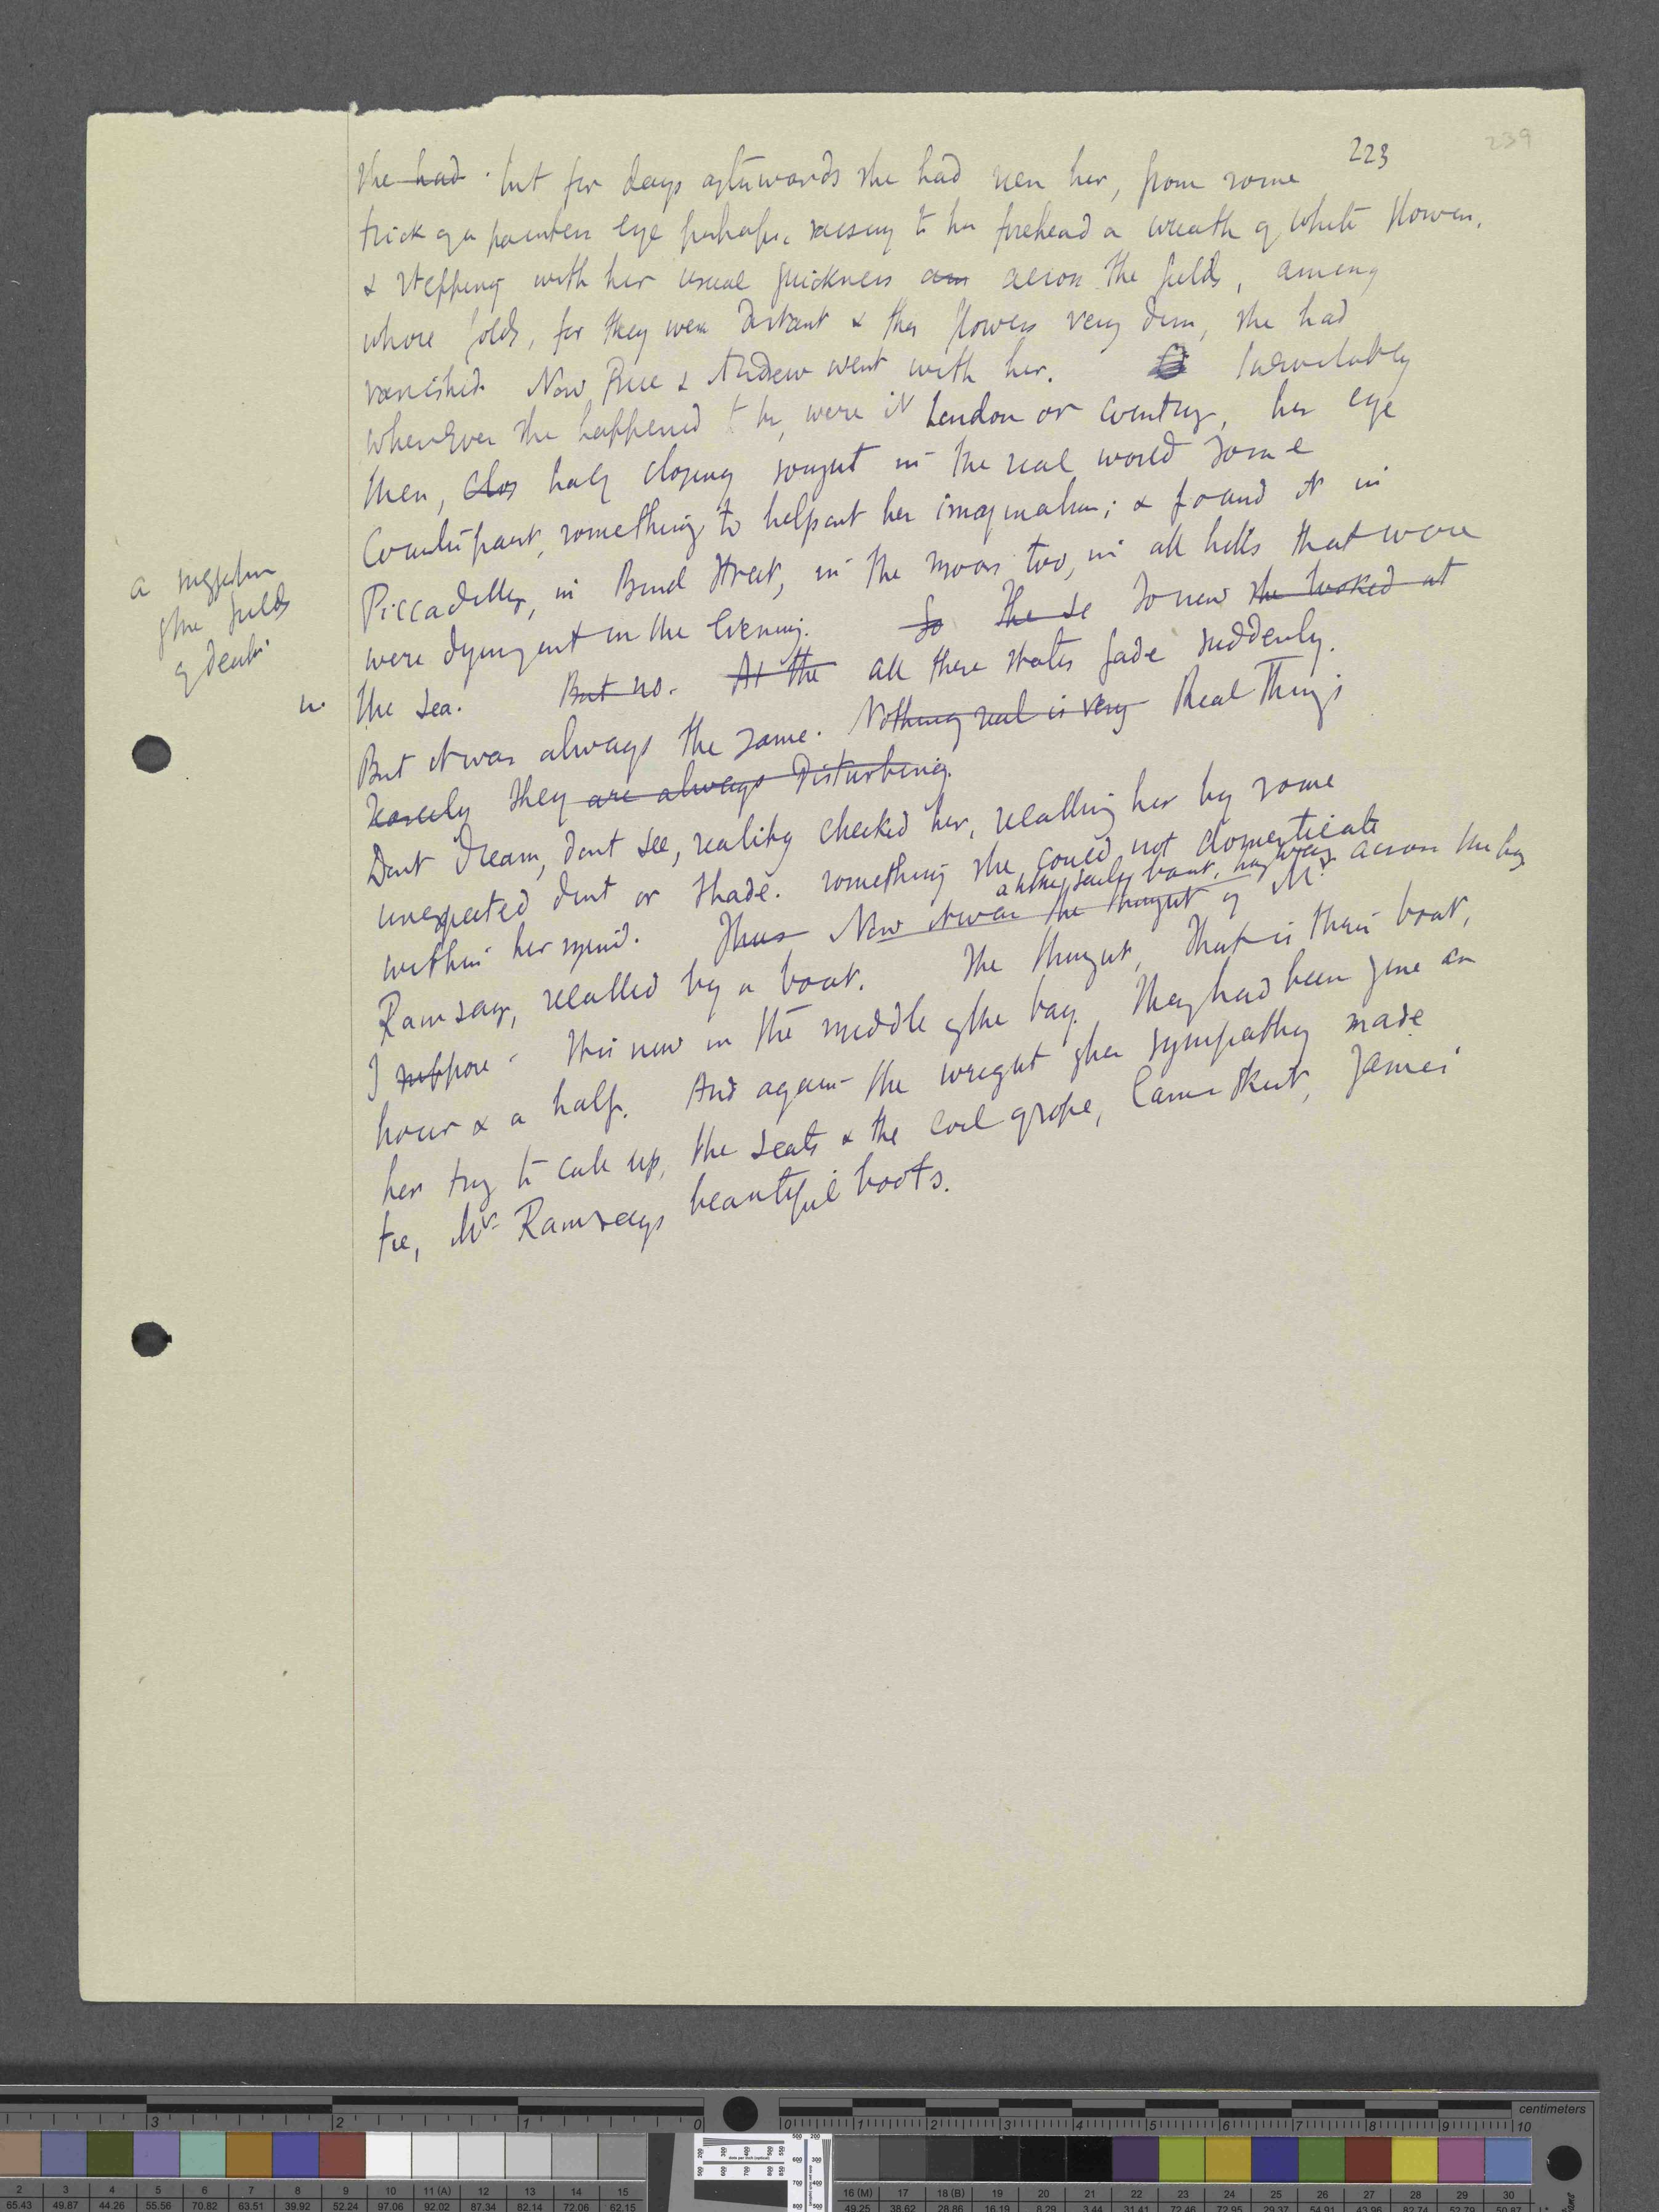 223
239
she had. but for days afterwards she had seen her, from some
trick of a painters eye perhaps, raising to her forehead a wreath of white flowers,
& stepping with her usual quickness across the fields, among
whose folds, for they were distant & the flowers very dim, she had
vanished. Now Prue & Andrew went with her. Inevitably
whenever she happened to be, were it London or country, her eye
then, clos half closing sought in the real world some
Counterpart, something to help out her imagination; & found it in
Piccadilly, in Bond Street, in the moors too, in all hills that were
were dying out in the evening. So The se So now she looked at
a suggestion
of the fields
of death
in
the sea. But no. At the all these states fade suddenly.
But it was always the same. Nothing real is very Real Things
rarely they are always disturbing.
Dont dream, dont see, reality checked her, recalling her by some
unexpected dint or shade. something she could not domesticate
a little sail, boat, half way across the bay
within her mind. Thus Now it was the thought of Mr
Ramsay, recalled by a boat. She thought, That is their boat,
I suppose. this now in the middle of the bay. They had been gone an
hour & a half. And again the weight of her sympathy made
her try to call up, the seats & the coil of rope, Cams skirt, James'
tie, Mr Ramsays beautiful boots.
centimeters